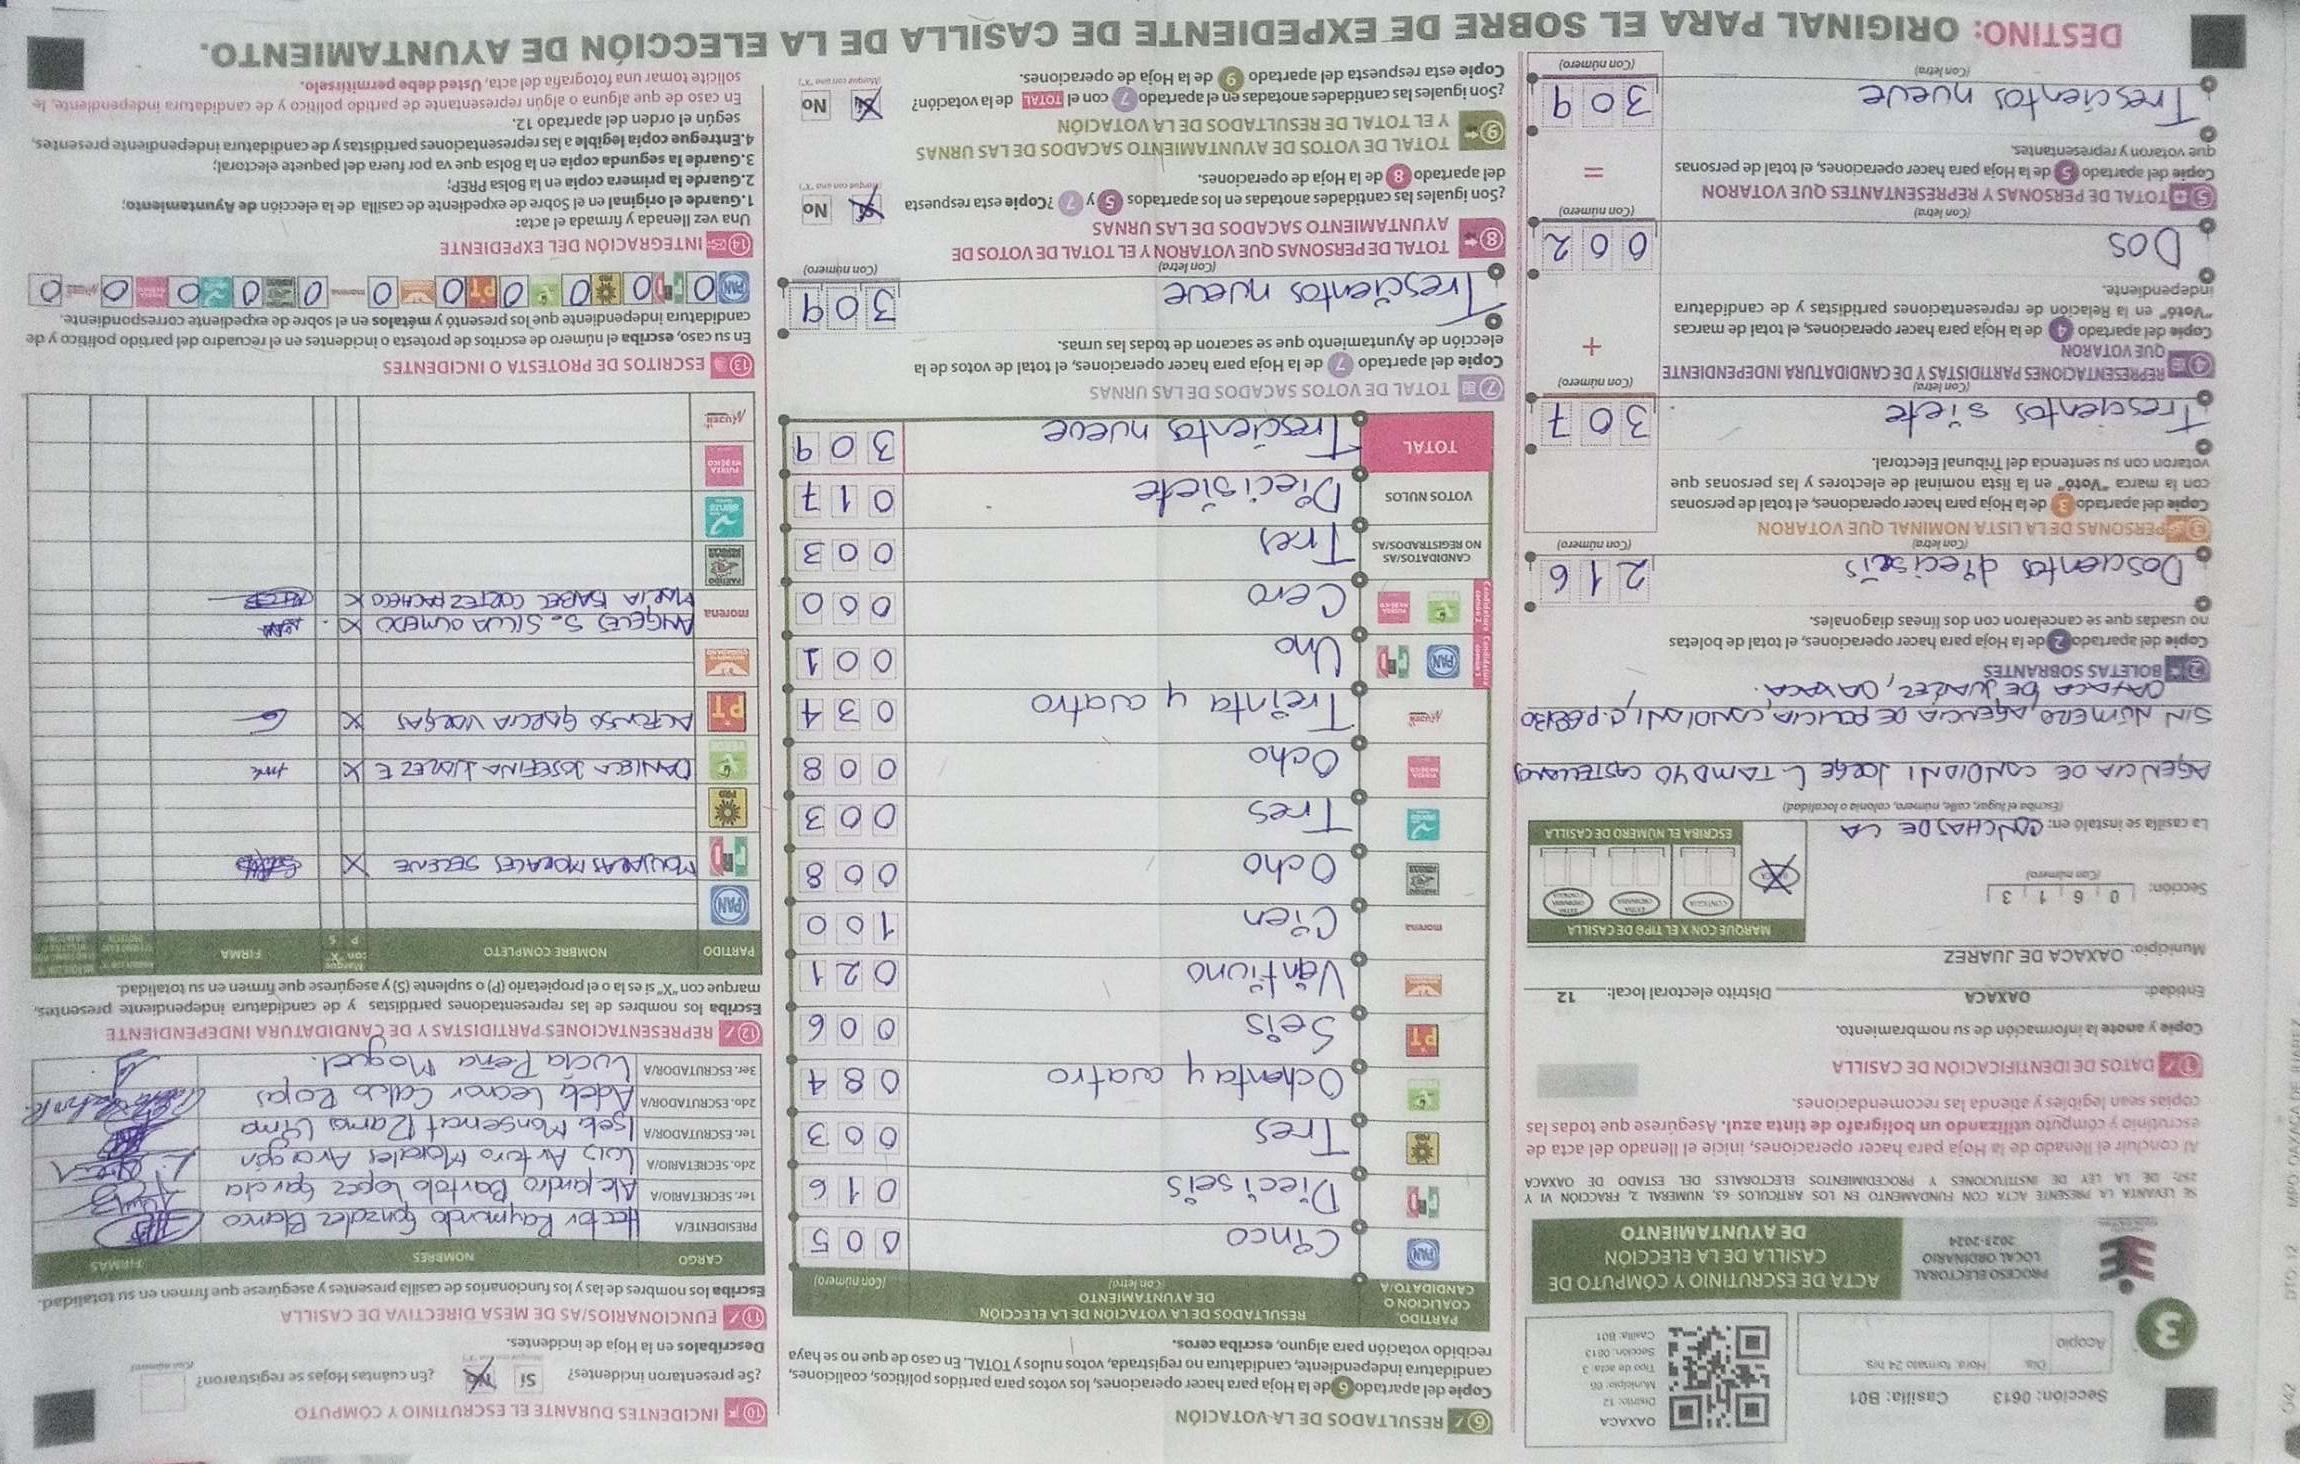 Sección: 0613 Casilla: B01
Acopio
Día Hora, formato 24 hrs.
3
OAXACA
Distrito: 12
Municipio: 66
Tipo de acta: 3
Sección: 0613
Casilla: B01
PROCESO ELECTORAL
LOCAL ORDINARIO
2023-2024
ACTA DE ESCRUTINIO Y CÓMPUTO DE
CASILLA DE LA ELECCIÓN
DE AYUNTAMIENTO
SE LEVANTA LA PRESENTE ACTA CON FUNDAMENTO EN LOS ARTÍCULOS 63, NUMERAL 2, FRACCIÓN VI Y
257; DE LA LEY DE INSTITUCIONES Y PROCEDIMIENTOS ELECTORALES DEL ESTADO DE OAXACA
Al concluir el llenado de la Hoja para hacer operaciones, inicie el llenado del acta de
escrutinio y cómputo utilizando un bolígrafo de tinta azul. Asegúrese que todas las
copias sean legibles y atienda las recomendaciones.
1 DATOS DE IDENTIFICACIÓN DE CASILLA
Copie y anote la información de su nombramiento.
Entidad: OAXACA Distrito electoral local: 12
Municipio: OAXACA DE JUAREZ
Sección: 0 6 1 3
(Con número)
MARQUE CON X EL TIPO DE CASILLA
CONTIGUA
ESCRIBA EL NÚMERO DE CASILLA
La casilla se instaló en: CONCHAS DE LA
(Escriba el lugar, calle, número, colonia o localidad)
AGENCIA DE CANDIANI JORGE L TAMAYO CASTELLANOS
SIN NÚMERO, AGENCIA DE POLICIA, CANDIANI, C.P. 68130
OAXACA DE JUAREZ, OAXACA.
2 BOLETAS SOBRANTES
Copie del apartado 2 de la Hoja para hacer operaciones, el total de boletas
no usadas que se cancelaron con dos líneas diagonales.
Doscientos dieciseis 2 1 6
(Con letra) (Con número)
3 PERSONAS DE LA LISTA NOMINAL QUE VOTARON
Copie del apartado 3 de la Hoja para hacer operaciones, el total de personas
con la marca "Votó" en la lista nominal de electores y las personas que
votaron con su sentencia del Tribunal Electoral.
Trescientos siete 3 0 7
(Con letra) (Con número)
4 REPRESENTACIONES PARTIDISTAS Y DE CANDIDATURA INDEPENDIENTE
QUE VOTARON
Copie del apartado 4 de la Hoja para hacer operaciones, el total de marcas
"Votó" en la Relación de representaciones partidistas y de candidatura
independiente.
+
Dos 0 0 2
(Con letra) (Con número)
5 TOTAL DE PERSONAS Y REPRESENTANTES QUE VOTARON
Copie del apartado 5 de la Hoja para hacer operaciones, el total de personas
que votaron y representantes.
=
Trescientos nueve 3 0 9
(Con letra) (Con número)
6 RESULTADOS DE LA VOTACIÓN
Copie del apartado 6 de la Hoja para hacer operaciones, los votos para partidos políticos, coaliciones,
candidatura independiente, candidatura no registrada, votos nulos y TOTAL. En caso de que no se haya
recibido votación para alguno, escriba ceros.
PARTIDO,
COALICIÓN O
CANDIDATO/A
RESULTADOS DE LA VOTACIÓN DE LA ELECCIÓN
DE AYUNTAMIENTO
(Con letra) (Con número)
PAN Cinco 0 0 5
PRI Dieciseis 0 1 6
PRD Tres 0 0 3
VERDE Ochenta y cuatro 0 8 4
PT Seis 0 0 6
Veintiuno 0 2 1
morena Cien 1 0 0
Ocho 0 0 8
Tres 0 0 3
FUERZA MÉXICO Ocho 0 0 8
Treinta y cuatro 0 3 4
PAN PRI Uno 0 0 1
VERDE FUERZA MÉXICO Cero 0 0 0
CANDIDATOS/AS
NO REGISTRADOS/AS Tres 0 0 3
VOTOS NULOS Diecisiete 0 1 7
TOTAL Trescientos nueve 3 0 9
7 TOTAL DE VOTOS SACADOS DE LAS URNAS
Copie del apartado 7 de la Hoja para hacer operaciones, el total de votos de la
elección de Ayuntamiento que se sacaron de todas las urnas.
Trescientos nueve 3 0 9
(Con letra) (Con número)
8 TOTAL DE PERSONAS QUE VOTARON Y EL TOTAL DE VOTOS DE
AYUNTAMIENTO SACADOS DE LAS URNAS
¿Son iguales las cantidades anotadas en los apartados 5 y 7? Copie esta respuesta
del apartado 8 de la Hoja de operaciones.
Sí No
(Marque con una "X")
9 TOTAL DE VOTOS DE AYUNTAMIENTO SACADOS DE LAS URNAS
Y EL TOTAL DE RESULTADOS DE LA VOTACIÓN
¿Son iguales las cantidades anotadas en el apartado 7 con el TOTAL de la votación?
Copie esta respuesta del apartado 9 de la Hoja de operaciones.
Sí No
(Marque con una "X")
10 INCIDENTES DURANTE EL ESCRUTINIO Y CÓMPUTO
¿Se presentaron incidentes? Sí No ¿En cuántas Hojas se registraron?
(Marque con una "X") (Con número)
Descríbalos en la Hoja de incidentes.
11 FUNCIONARIOS/AS DE MESA DIRECTIVA DE CASILLA
Escriba los nombres de las y los funcionarios de casilla presentes y asegúrese que firmen en su totalidad.
CARGO NOMBRES FIRMAS
PRESIDENTE/A Hector Raymundo Gonzalez Blanco
1er. SECRETARIO/A Alejandro Bartolo Lopez Garcia
2do. SECRETARIO/A Luis Arturo Morales Aragón
1er. ESCRUTADOR/A Isela Monserrat Ramos Luna
2do. ESCRUTADOR/A Adela Leonor Calvo Rojas
3er. ESCRUTADOR/A Lucia Peña Moguel.
12 REPRESENTACIONES PARTIDISTAS Y DE CANDIDATURA INDEPENDIENTE
Escriba los nombres de las representaciones partidistas y de candidatura independiente presentes,
marque con "X" si es la o el propietario (P) o suplente (S) y asegúrese que firmen en su totalidad.
PARTIDO NOMBRE COMPLETO Marque con "X" P S FIRMA
PAN
PRI MOLJARAS MORALES SELENE X
PRD
VERDE DANIELA JOSEFINA JUAREZ E X
PT ALFONSO GARCIA VARGAS X
morena ANGELES S. SILVA OLMEDO X
MARIA ISABEL CORTEZ PACHECO X
FUERZA MÉXICO
13 ESCRITOS DE PROTESTA O INCIDENTES
En su caso, escriba el número de escritos de protesta o incidentes en el recuadro del partido político y de
candidatura independiente que los presentó y métalos en el sobre de expediente correspondiente.
PAN 0 PRI 0 PRD 0 VERDE 0 PT 0 0 morena 0 0 0 0 0
14 INTEGRACIÓN DEL EXPEDIENTE
Una vez llenada y firmada el acta:
1.Guarde el original en el Sobre de expediente de casilla de la elección de Ayuntamiento;
2.Guarde la primera copia en la Bolsa PREP;
3.Guarde la segunda copia en la Bolsa que va por fuera del paquete electoral;
4.Entregue copia legible a las representaciones partidistas y de candidatura independiente presentes,
según el orden del apartado 12.
En caso de que alguna o algún representante de partido político y de candidatura independiente, le
solicite tomar una fotografía del acta, Usted debe permitírselo.
DESTINO: ORIGINAL PARA EL SOBRE DE EXPEDIENTE DE CASILLA DE LA ELECCIÓN DE AYUNTAMIENTO.
DTO: 12 MPO: OAXACA DE JUAREZ